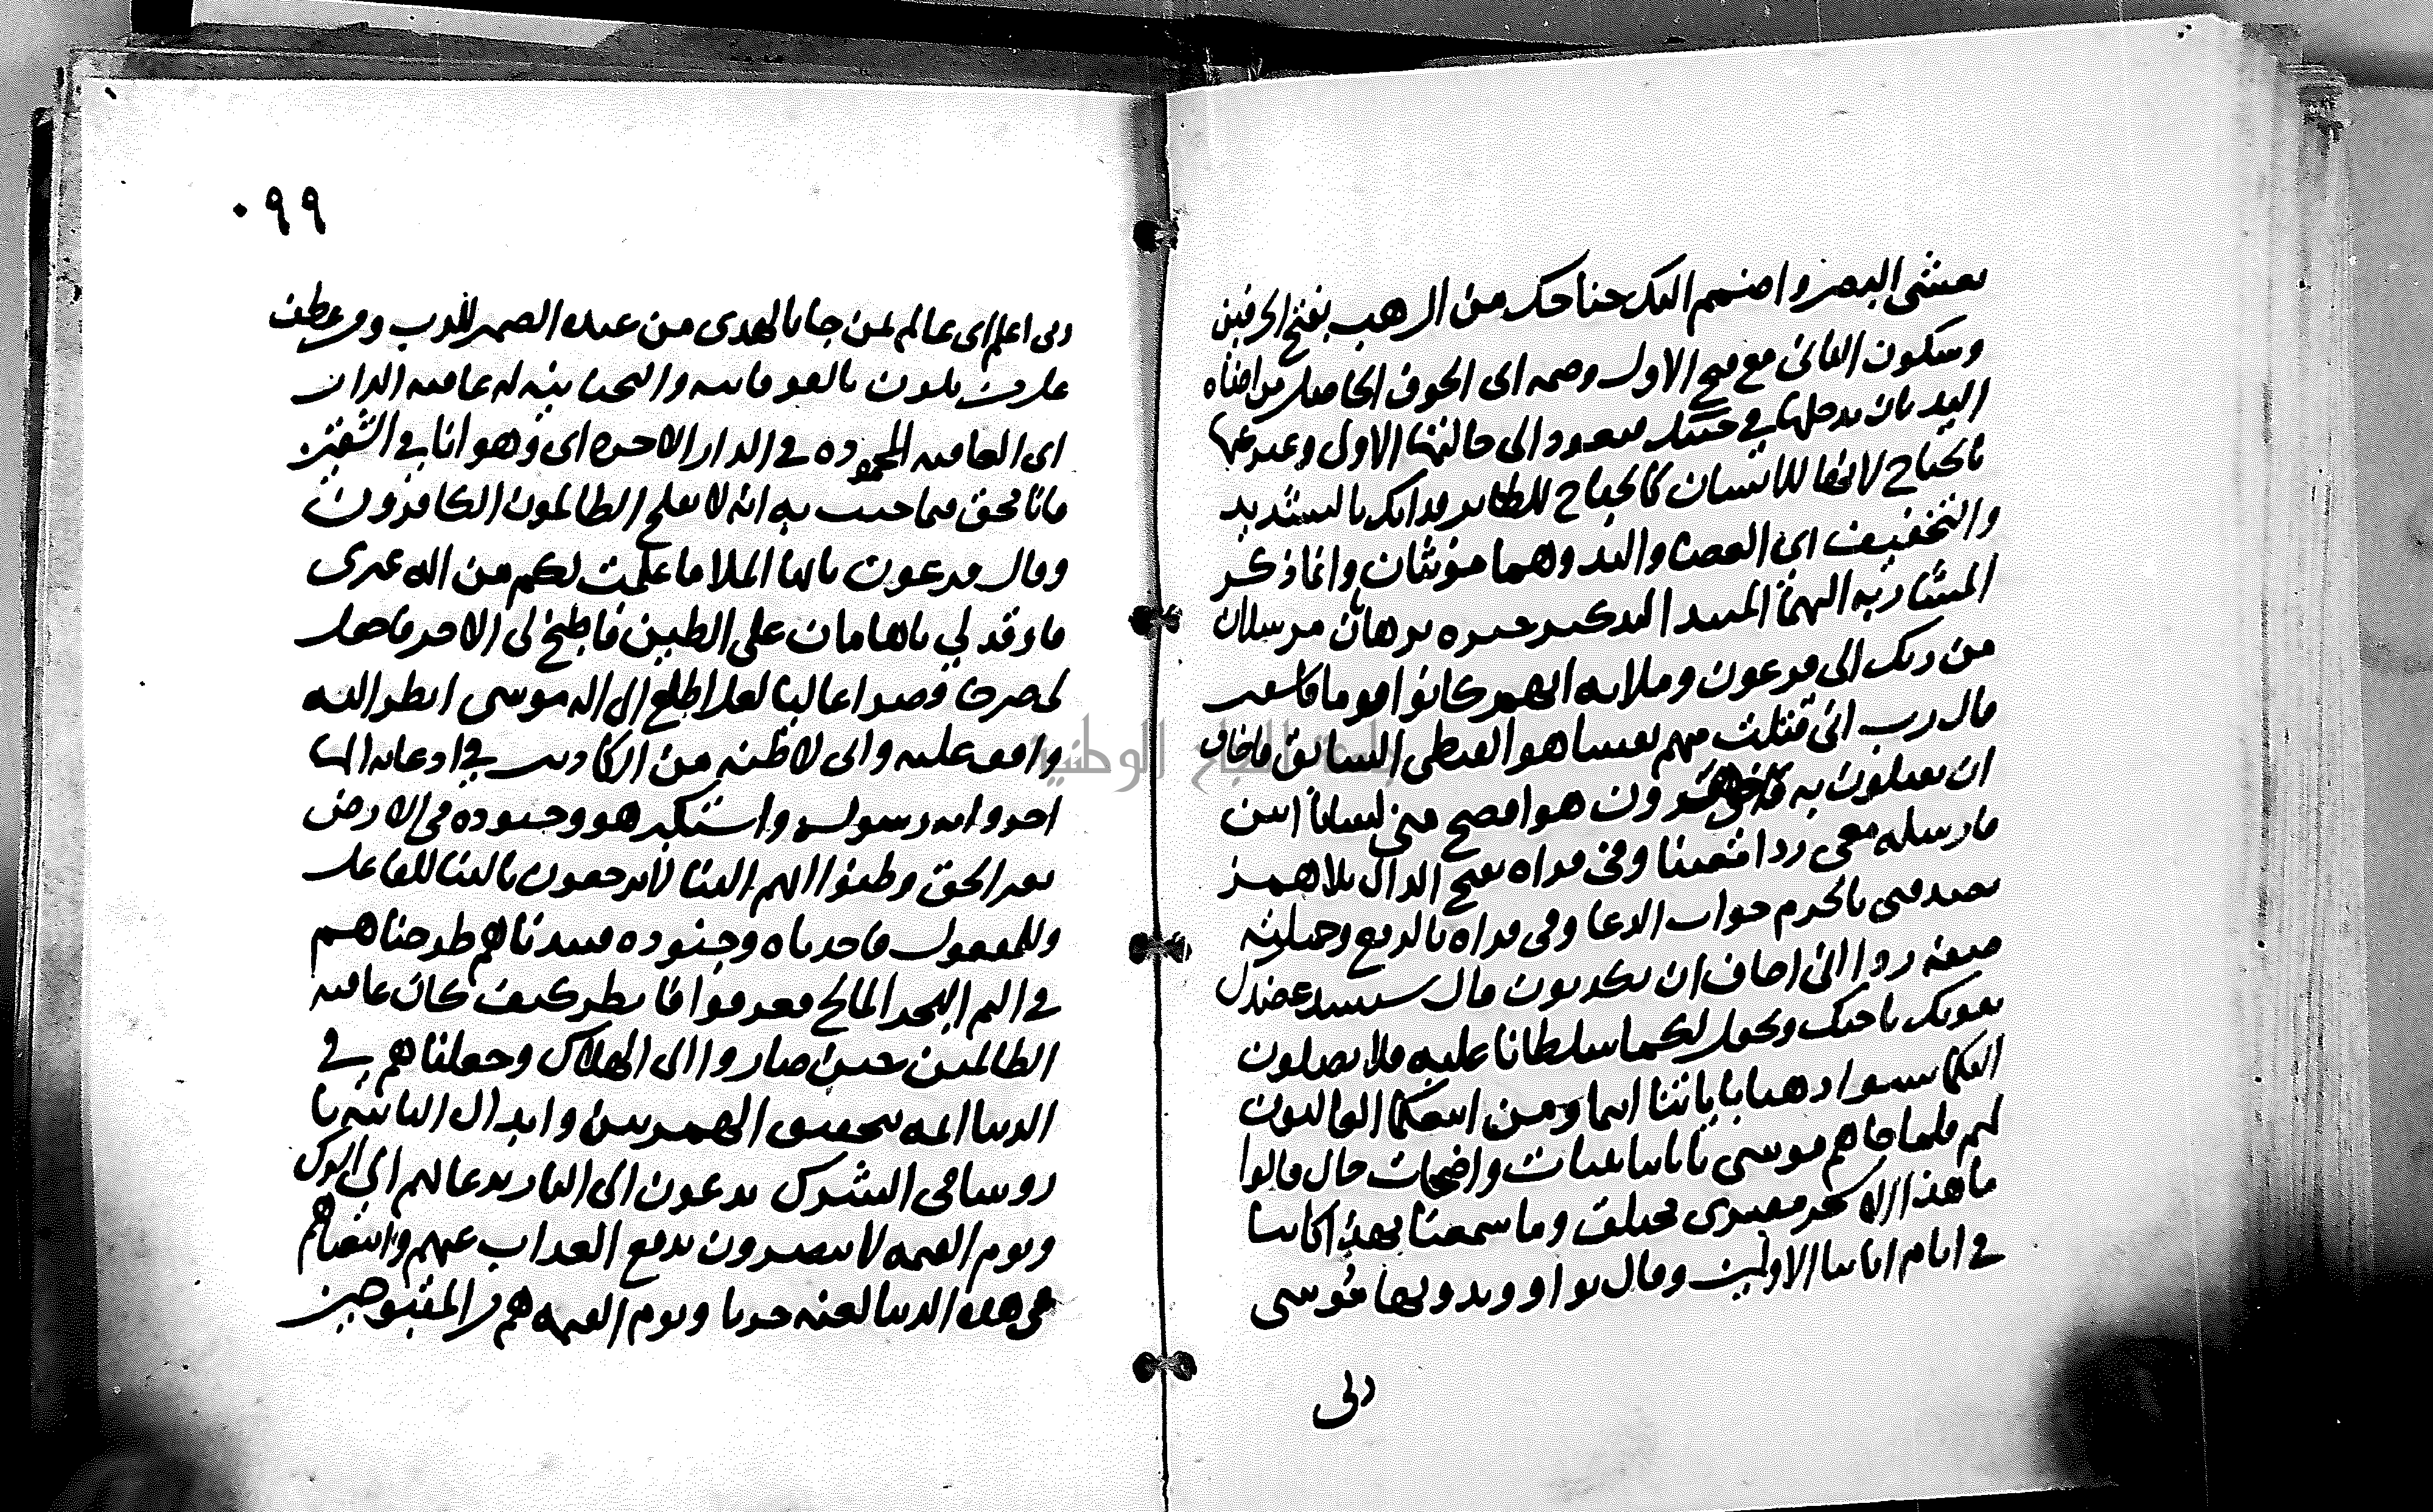 يعشي البصر واضمم اليك جناحك من الرهب بفتح الحرفين
وسكون الثاني مع فتح الاول وضمه اي الخوف الحاصل من اضاة
اليد بان تدخلها في جيبك فتعود الى حالتها الاول وعبر عنها
بالجناح لانها للانسان كالجناح للطاير فذانك بالتشديد
والتخفيف اي العصا واليد وهما مونثان وانما ذكر
المشار به اليهما المبتدا لتذكير خبره برهانان مرسلان
من ربك الى فرعون وملايه انهم كانوا قوما فاسقين
قال رب اني قتلت منهم نفسا هو القبطي السابق فاخاف
ان يقتلون به واخي هرون هو افصح مني لسانا ابين
فارسله معي ردا معينا وفي قراه بفتح الدال بلا همز
يصدقني بالجزم جواب الدعا وفي قراه بالرفع وجملته
صفة ردا اني اخاف ان يكذبون قال سنشد عضدك
نقويك باخيك ونجعل لكما سلطانا غلبه فلا يصلون
اليكما بسوء اذهبا باياتنا انتما ومن اتبعكما الغالبون
لهم فلما جاهم موسى باياتنا بينات واضحات حال قالوا
ما هذا الا سحر مفترى مختلق وما سمعنا بهذا كاينا
في ايام ابائنا الاولين وقال بواو وبدونها موسى
ربي
٠٩٩
ربي اعلم اي عالم بمن جا بالهدى من عنده الضمير للرب ومن عطف
على من يكون بالفوقانيه والتحتانيه له عاقبه الدار
اي العاقبه المحموده في الدار الاخره اي وهو انا في الشقين
فانا محق فيما جيت به انه لا يفلح الظالمون الكافرون
وقال فرعون يا ايها الملا ما علمت لكم من اله غيري
فاوقد لي ياهامان على الطين فاطبخ لي الاجر فاجعل
لي صرحا قصرا عاليا لعلي اطلع الى اله موسى انظر اليه
واقف عليه واني لاظنه من الكاذبين في ادعائه الها
اخر وانه رسوله واستكبر هو وجنوده في الارض
بغير الحق وظنوا انهم الينا لا يرجعون بالبنا للفاعل
وللمفعول فاخذناه وجنوده فنبذناهم طرحناهم
في اليم البحر المالح فغرقوا فانظر كيف كان عاقبه
الظالمين حين صاروا الى الهلاك وجعلناهم في
الدنيا ايمه بتحقيق الهمزتين وابدال الثانيه يا
روسا في الشرك يدعون الى النار بدعائهم الى الشرك
ويوم القيمه لا ينصرون بدفع العذاب عنهم واتبعناهم
في هذه الدنيا لعنه خزيا ويوم القيمه هم من المقبوحين